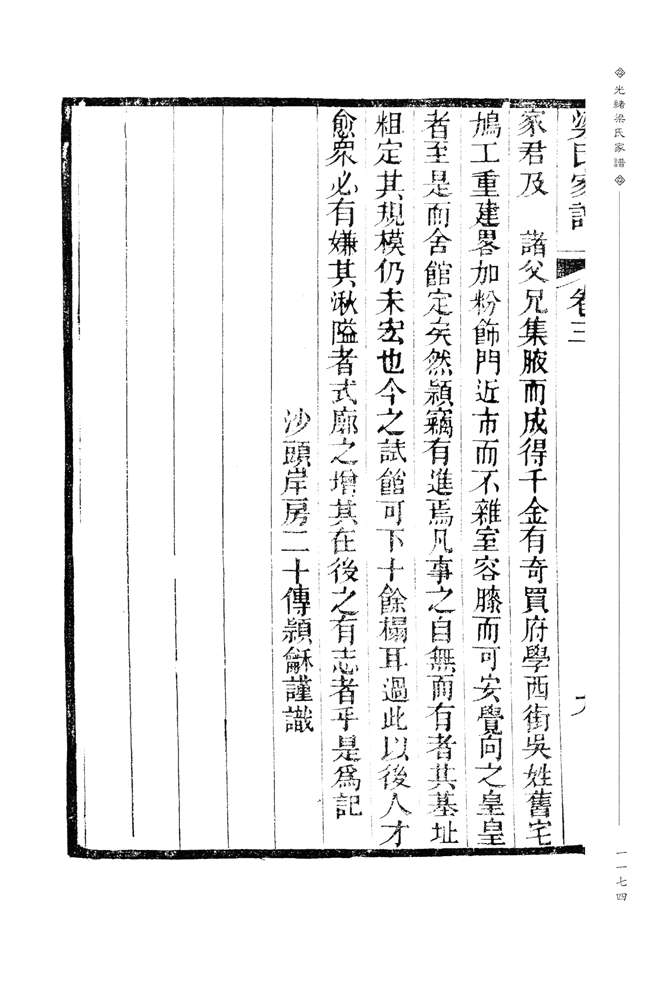 光緒梁氏家譜
一一七四
梁氏家譜 卷三
家君及 諸父兄集腋而成得千金有奇買府學西街吳姓舊宅
鳩工重建畧加粉飾門近市而不雜室容膝而可安覺向之皇皇
者至是而舍館定矣然穎竊有進焉凡事之自無而有者其基址
粗定其規模仍未宏也今之試館可下十餘榻耳過此以後人才
愈衆必有嫌其湫隘者式廓之增其在後之有志者乎是爲記
沙頭岸房二十傳穎龢謹識